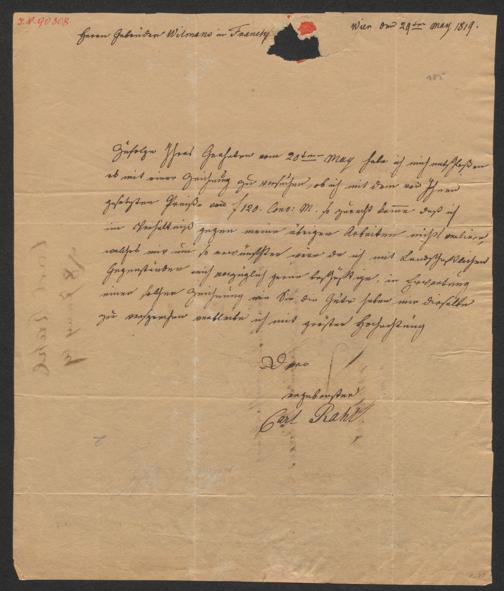 I.N. 90308
Herrn Gebrüder Wilmans in Frankf
Wien den 29ten May 1819.
185
Zufolge Ihres Geehrten vom 20ten May habe ich mich entschloßen
es mit einer Zeichnung zu versuchen ob ich mit dem von Ihnen
gesetzten Preiße von f 120. Conv: M. so zurecht komme daß ich
im Verhältniß gegen meine übrigen Arbeiten nichts verliere,
welches mir um so erwünschter wäre da ich mit Landschaftlichen
Gegenständen mich vorzüglich gerne beschäftige, in Erwartung
einer solchen Zeichnung wie Sie die Güte haben mir dieselbe
zu versprechen verbleibe ich mit größter Hochachtung
Dero
ergebenster
Carl Rahl